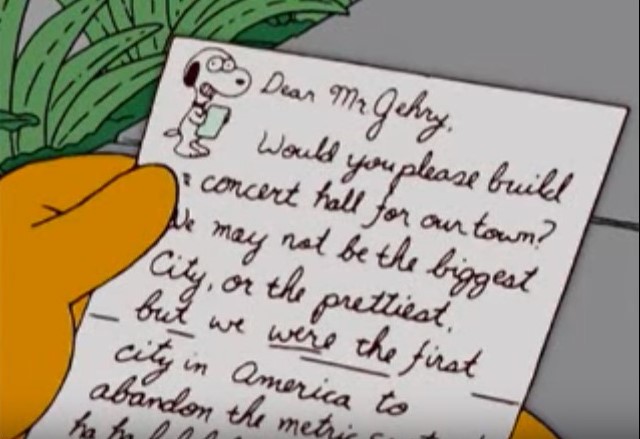 Dear Mr. Gehry,
Would you please build
concert hall for our town?
We may not be the biggest
City, or the prettiest,
but we were the first
city in America to
abandon the metric
ha ha